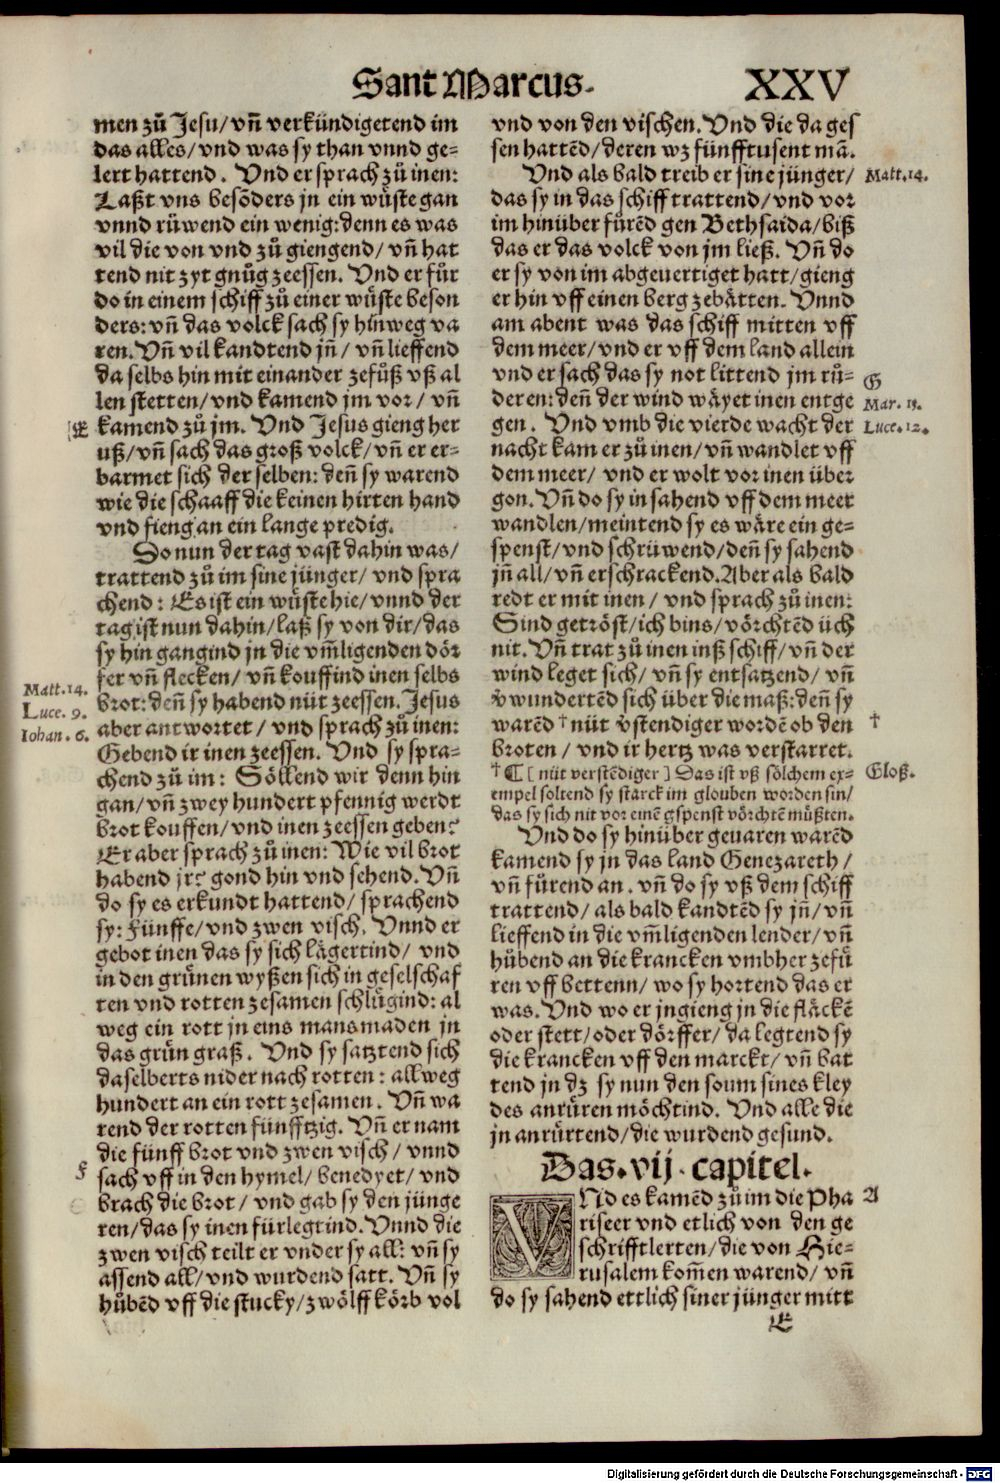 Sant Marcus.
XXV
men zů Jesu/vñ verkündigetend im
das alles/vnd was sy than vnnd ge-
lert hattend. Vnd er sprach zů inen:
Laßt vns besõders jn ein wüste gan
vnnd rüwend ein wenig:denn es was
vil die von vnd zů giengend/vñ hat
tend nit zyt gnůg zeessen. Vnd er fůr
do in einem schiff zů einer wüste beson
ders:vñ das volck sach sy hinweg va
ren.Vñ vil kandtend jñ/vñ lieffend
da selbs hin mit einander zefůß vß al
len stetten/vnd kamend jm vor/vñ
kamend zů jm. Vnd Jesus gieng her
uß/vñ sach das groß volck/vñ er er-
barmet sich der selben:deñ sy warend
wie die schaaff die keinen hirten hand
vnd fieng an ein lange predig.
So nun der tag vast dahin was/
trattend zů im sine jünger/vnd spra
chend: Es ist ein wüste hie/vnnd der
tag ist nun dahin/laß sy von dir/das
sy hin gangind jn die vm̃ligenden dör
fer vñ flecken/vñ kouffind inen selbs
brot:deñ sy habend nüt zeessen.Jesus
aber antwortet/vnd sprach zů inen:
Gebend ir inen zeessen. Vnd sy spra-
chend zů im: Söllend wir denn hin
gan/vñ zwey hundert pfennig werdt
brot kouffen/vnd inen zeessen geben?
Er aber sprach zů inen: Wie vil brot
habend jr? gond hin vnd sehend.Vñ
do sy es erkundt hattend/sprachend
sy:Fünffe/vnd zwen visch. Vnnd er
gebot inen das sy sich lägertind/vnd
in den grünen wyßen sich in geselschaf
ten vnd rotten zesamen schlügind:al
weg ein rott jn eins mansmaden jn
das grün graß. Vnd sy satztend sich
daselberts nider nach rotten:allweg
hundert an ein rott zesamen. Vñ wa
rend der rotten fünfftzig. Vñ er nam
die fünff brot vnd zwen visch/vnnd
sach vff in den hymel/benedyet/vnd
brach die brot/vnd gab sy den jünge
ren/das sy inen fürlegtind.Vnnd die
zwen visch teilt er vnder sy all:vñ sy
assend all/vnd wurdend satt. Vñ sy
hůbēd vff die stucky/zwölff körb vol
E
Matt.14.
Luce.9.
Iohan.6.
F
vnd von den vischen.Vnd die da ges
sen hattēd/deren wz fünfftusent mã.
Vnd als bald treib er sine jünger/
das sy in das schiff trattend/vnd vor
im hinüber fürēd gen Bethsaida/biß
das er das volck von jm ließ. Vñ do
er sy von im abgeuertiget hatt/gieng
er hin vff einen berg zebätten. Vnnd
am abent was das schiff mitten vff
dem meer/vnd er vff dem land allein
vnd er sach das sy not littend jm rů-
deren:deñ der wind wäyet inen entge
gen. Vnd vmb die vierde wacht der
nacht kam er zů inen/vñ wandlet vff
dem meer/vnd er wolt vor inen über
gon.Vñ do sy in sahend vff dem meer
wandlen/meintend sy es wäre ein ge-
spenst/vnd schrüwend/deñ sy sahend
jñ all/vñ erschrackend.Aber als bald
redt er mit inen/vnd sprach zů inen:
Sind getröst/ich bins/vörchtēd üch
nit. Vñ trat zů inen inß schiff/vñ der
wind leget sich/vñ sy entsatzend/vñ
v̊wundertēd sich über die maß:deñ sy
warēd †nüt v̊stendiger wordē ob den
broten/vnd ir hertz was verstarret.
†¶[nüt verstēdiger] Das ist vß sölchem ex-
empel soltend sy starck im glouben worden sin/
das sy sich nit vor einē gspenst vörchtē müßten.
Vnd do sy hinüber geuaren warēd
kamend sy jn das land Genezareth/
vñ fürend an. vñ do sy vß dem schiff
trattend/als bald kandtēd sy jñ/vñ
lieffend in die vm̃ligenden lender/vñ
hůbend an die krancken vmbher zefü
ren vff bettenn/wo sy hortend das er
was. Vnd wo er jngieng jn die fläckē
oder stett/oder dörffer/da legtend sy
die krancken vff den marckt/vñ bat
tend jn dz sy nun den soum sines kley
des anrüren möchtind. Vnd alle die
jn anrürtend/die wurdend gesund.
Das.vij.capitel.
VNd es kamēd zů im die Pha
riseer vnd etlich von den ge
schrifftlerten/die von Hie-
rusalem kom̃en warend/vñ
do sy sahend ettlich siner jünger mitt
E
Matt.14.
G
Mar.13.
Luce.12.
†
Gloß.
A
Digitalisierung gefördert durch die Deutsche Forschungsgemeinschaft - DFG